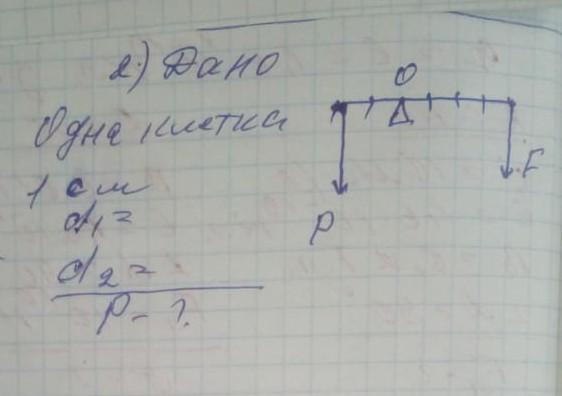 2) Дано
Одна клетка
1 см
d₁ =
d₂ =
P - ?
O
F
P